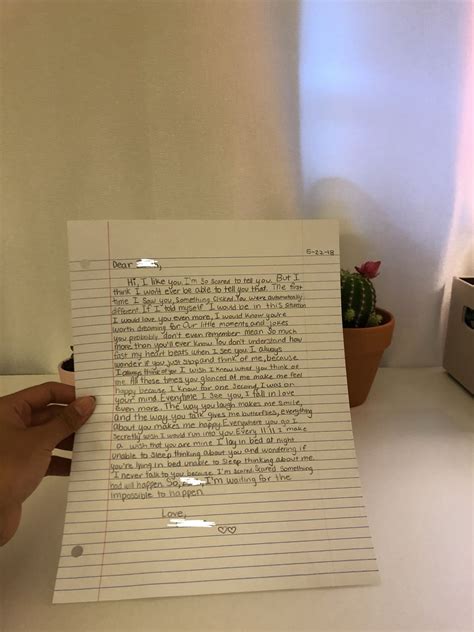 5-22-18
Dear
Hi, I like you. I'm so scared to tell you. But I
think I won't ever be able to tell you that. The first
time I saw you, something clicked. You were automatically
different. If I told myself I would be in this situation
I would love you even more, I would know you're
worth dreaming for. Our little moments and jokes
you probably don't even remember mean so much
more than you'll ever know. You don't understand how
fast my heart beats when I see you. I always
wonder if you just stop and think of me, because
I always think of you. I wish I knew what you think of
me. All those times you glanced at me make me feel
happy because I know for one second, I was on
your mind. Everytime I see you, I fall in love
even more. The way you laugh makes me smile,
and the way you talk gives me butterflies, everything
about you makes me happy. Everywhere you go I
secretly wish I would run into you. Every 11:11 I make
a wish that you are mine. I lay in bed at night
unable to sleep thinking about you and wondering if
you're lying in bed unable to sleep thinking about me.
I never talk to you because I'm scared. Scared something
bad will happen. So, I'm waiting for the
impossible to happen
Love,